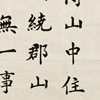 山中住
繞郡山
無一事